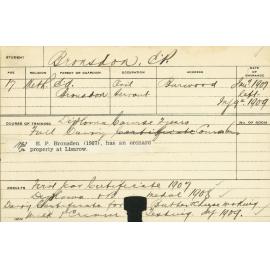 STUDENT
Bronsdon, E.P.
AGE RELIGION PARENT OR GUARDIAN OCCUPATION ADDRESS DATE OF ENTRANCE
17 Meth. Ed. Civil Burwood Jan 1907
Bronsdon Servant left
1909
COURSE OF TRAINING Diploma Course 2 years No. OF ROOM
Full Dairy Certificate Course
E. P. Bronsdon (1907), has an orchard
property at Lisarow.
RESULTS First Year Certificate 1907
Diploma Medal 1908
Dairy Certificate for Butter, Cheese making
Milk & Cream Testing 1909.